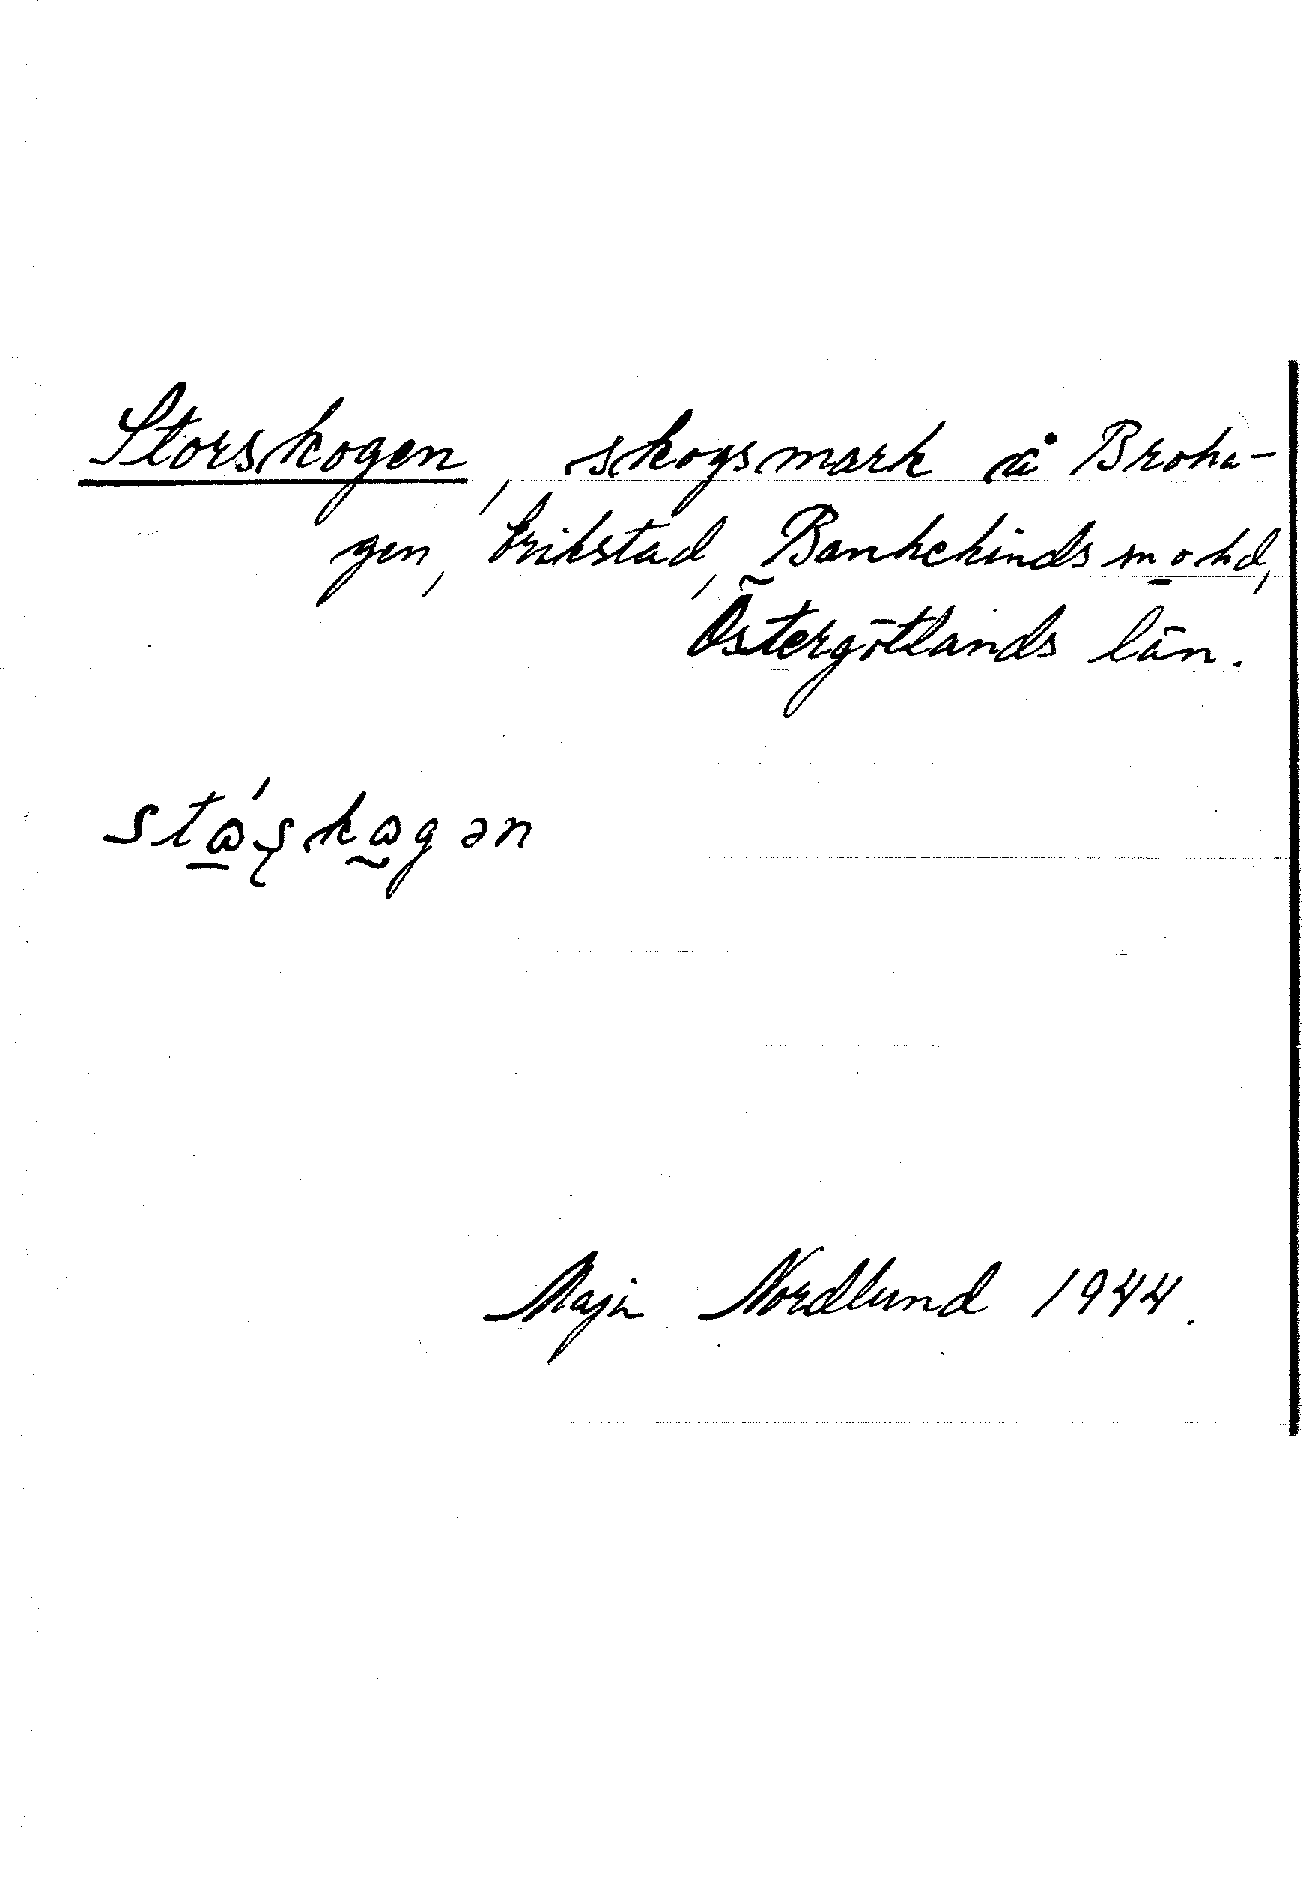 Storskogen, skogsmark å Broha-
gen, Erikstad, Bankekinds sn o hd,
Östergötlands län.
stɷ́ʂkɷgən
Maja Nordlund 1944.